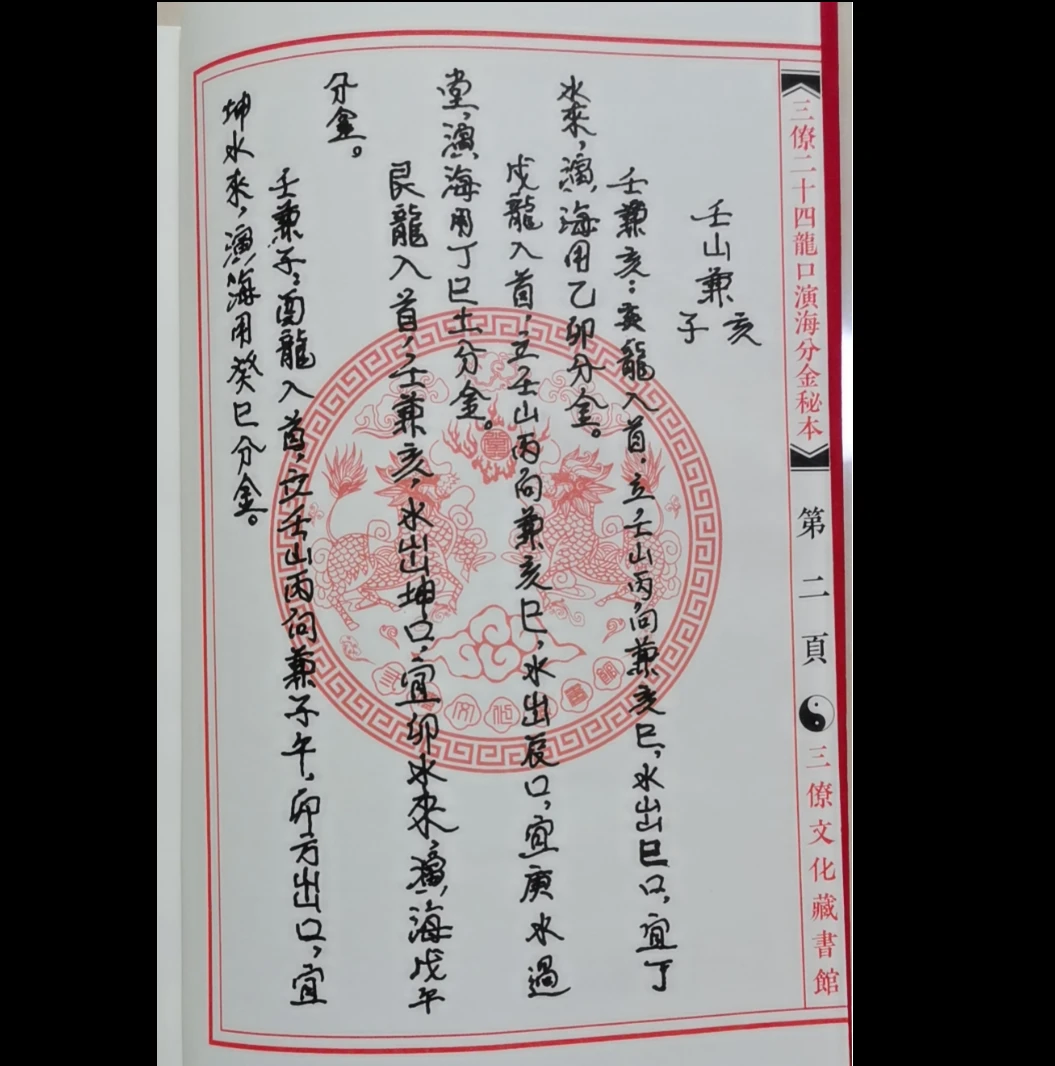 三僚二十四龍口演海分金秘本
第二頁
三僚文化藏書館
壬山兼亥子
壬兼亥：亥龍入首，立壬山丙向兼亥巳，水出巳口，宜丁
水來，演海用乙卯分金。
戌龍入首，立壬山丙向兼亥巳，水出辰口，宜庚水過
堂，演海用丁巳土分金。
艮龍入首，壬兼亥，水出坤口，宜卯水來，演海戊午
分金。
壬兼子：酉龍入首，立壬山丙向兼子午，卯方出口，宜
坤水來，演海用癸巳分金。